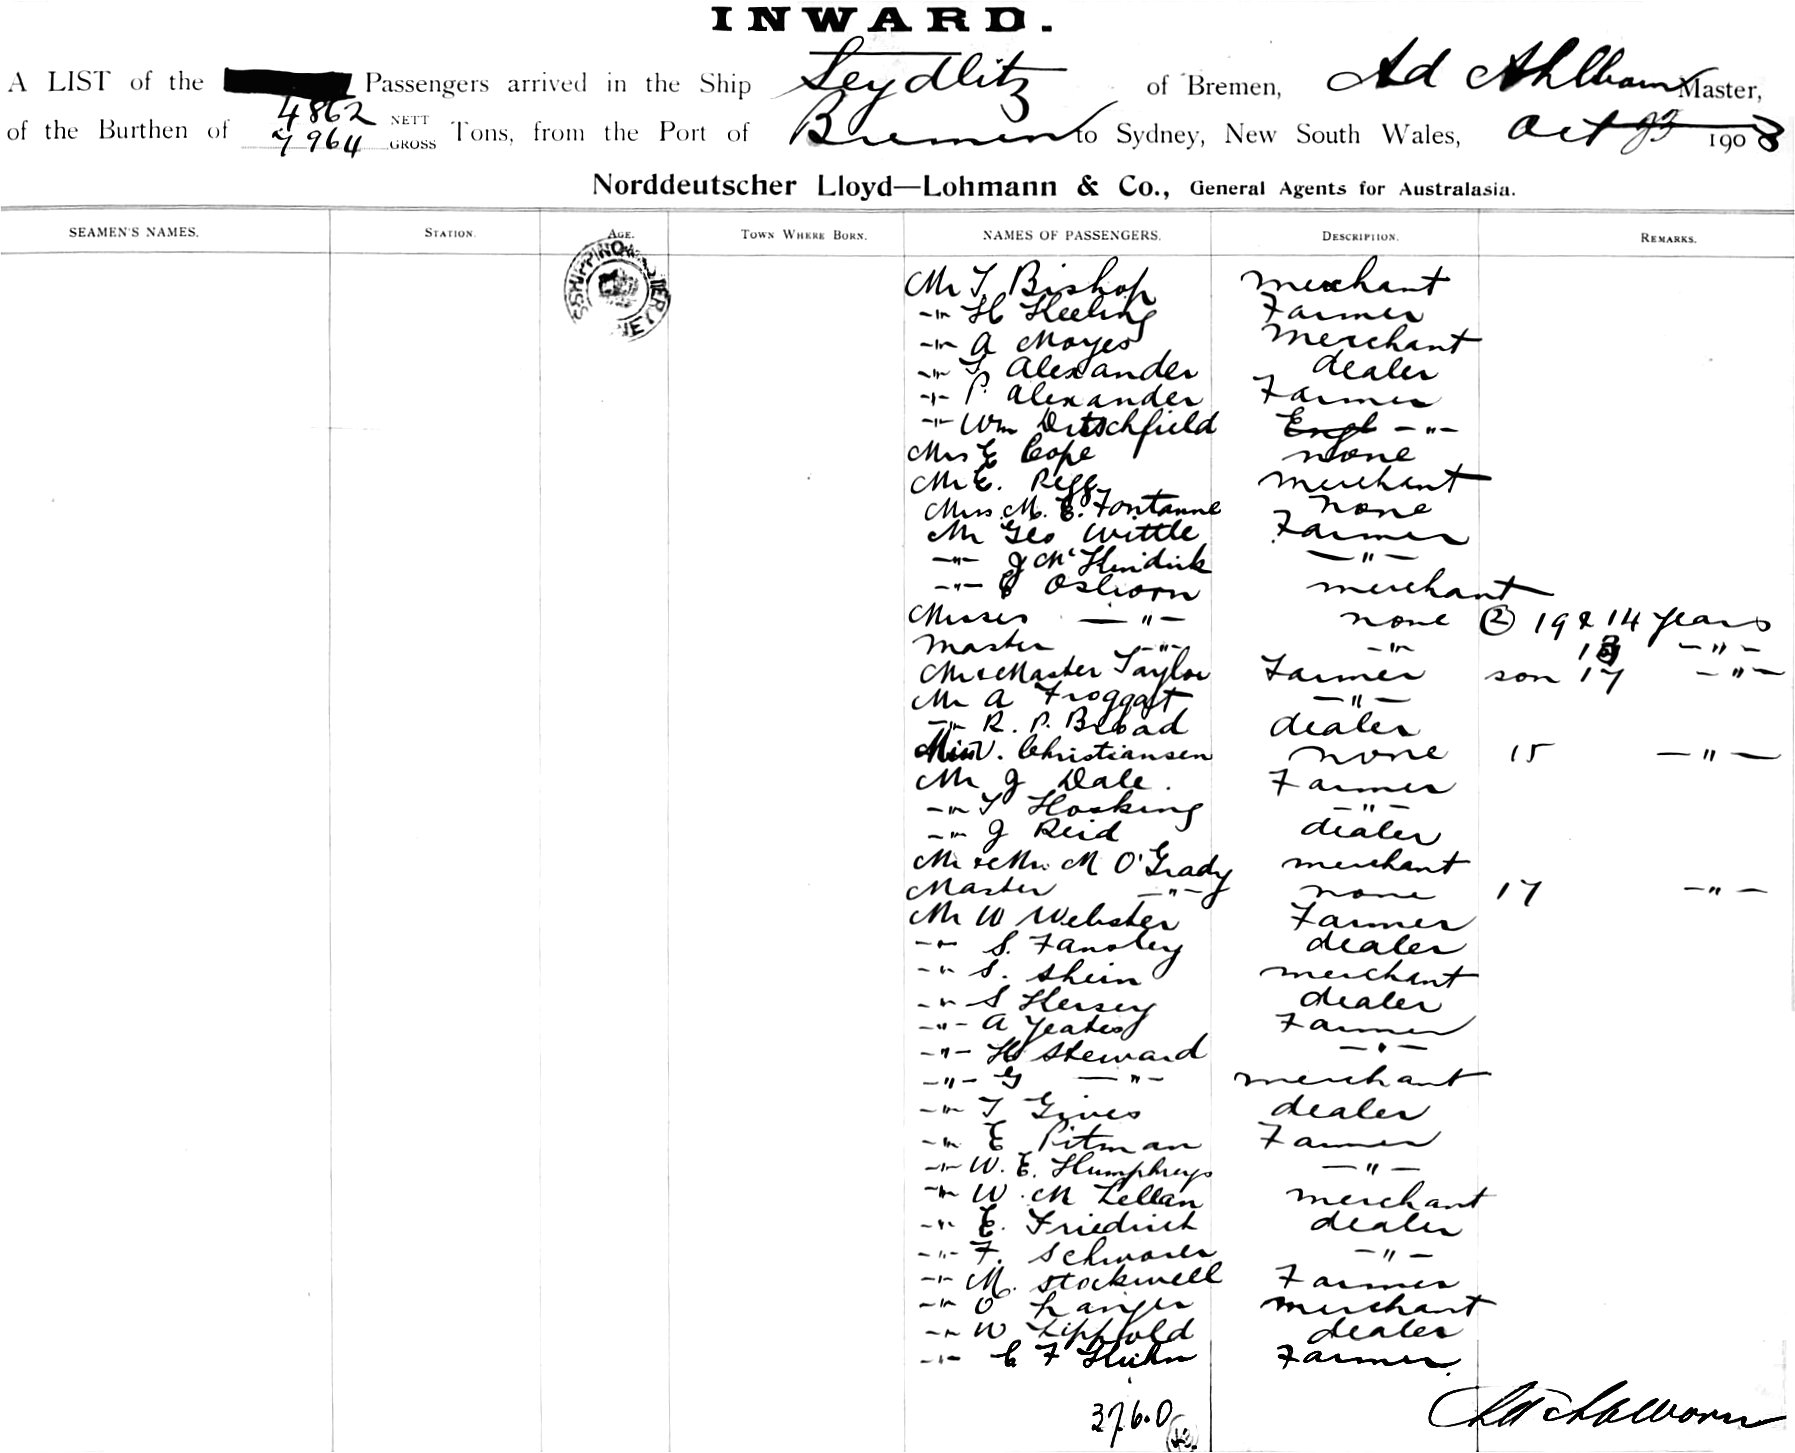 INWARD.
A LIST of the Passengers arrived in the Ship Seydlitz of Bremen, Ad Ahlborn Master,
of the Burthen of 4862 NETT 7964 GROSS Tons, from the Port of Bremen to Sydney, New South Wales, Oct 23 1908
Norddeutscher Lloyd—Lohmann & Co., General Agents for Australasia.
SEAMEN'S NAMES. STATION. AGE. TOWN WHERE BORN. NAMES OF PASSENGERS. DESCRIPTION. REMARKS.
Mr T Bishop merchant
-"- H Keeling Farmer
-"- A Moyes merchant
-"- T Alexander dealer
-"- P. Alexander Farmer
-"- Wm Ditschfield Engl -"-
Mrs E Cope none
Mr E. Regg merchant
Miss M. E. Fontanne none
Mr Geo Wittle Farmer
-"- J Mc -"-
-"- Osborn merchant
Misses -"- none (2) 19 & 14 years
Master -"- -"- -"-
Mr & Master Taylor Farmer son 17 -"-
Mr A Froggatt -"-
-"- R. P. Broad dealer
Miss V. Christiansen none 15 -"-
Mr J Dale. Farmer
-"- T Hosking -"-
-"- J Reid dealer
Mr & Mrs M O'Grady merchant
Master -"- none 17 -"-
Mr W Webster Farmer
-"- S. Fansley dealer
-"- S. Shein merchant
-"- S Hersey dealer
-"- A Yeates Farmer
-"- H Steward -"-
-"- G -"- merchant
-"- T Gives dealer
-"- E Pitman Farmer
-"- W. E. Humphreys -"-
-"- W. M Lellan merchant
-"- E. Friedrich dealer
-"- F. Schwarer -"-
-"- M. Stockwell Farmer
-"- O Langer merchant
-"- W Lippold dealer
-"- C F Huhn Farmer.
376.0 Ad Ahlborn